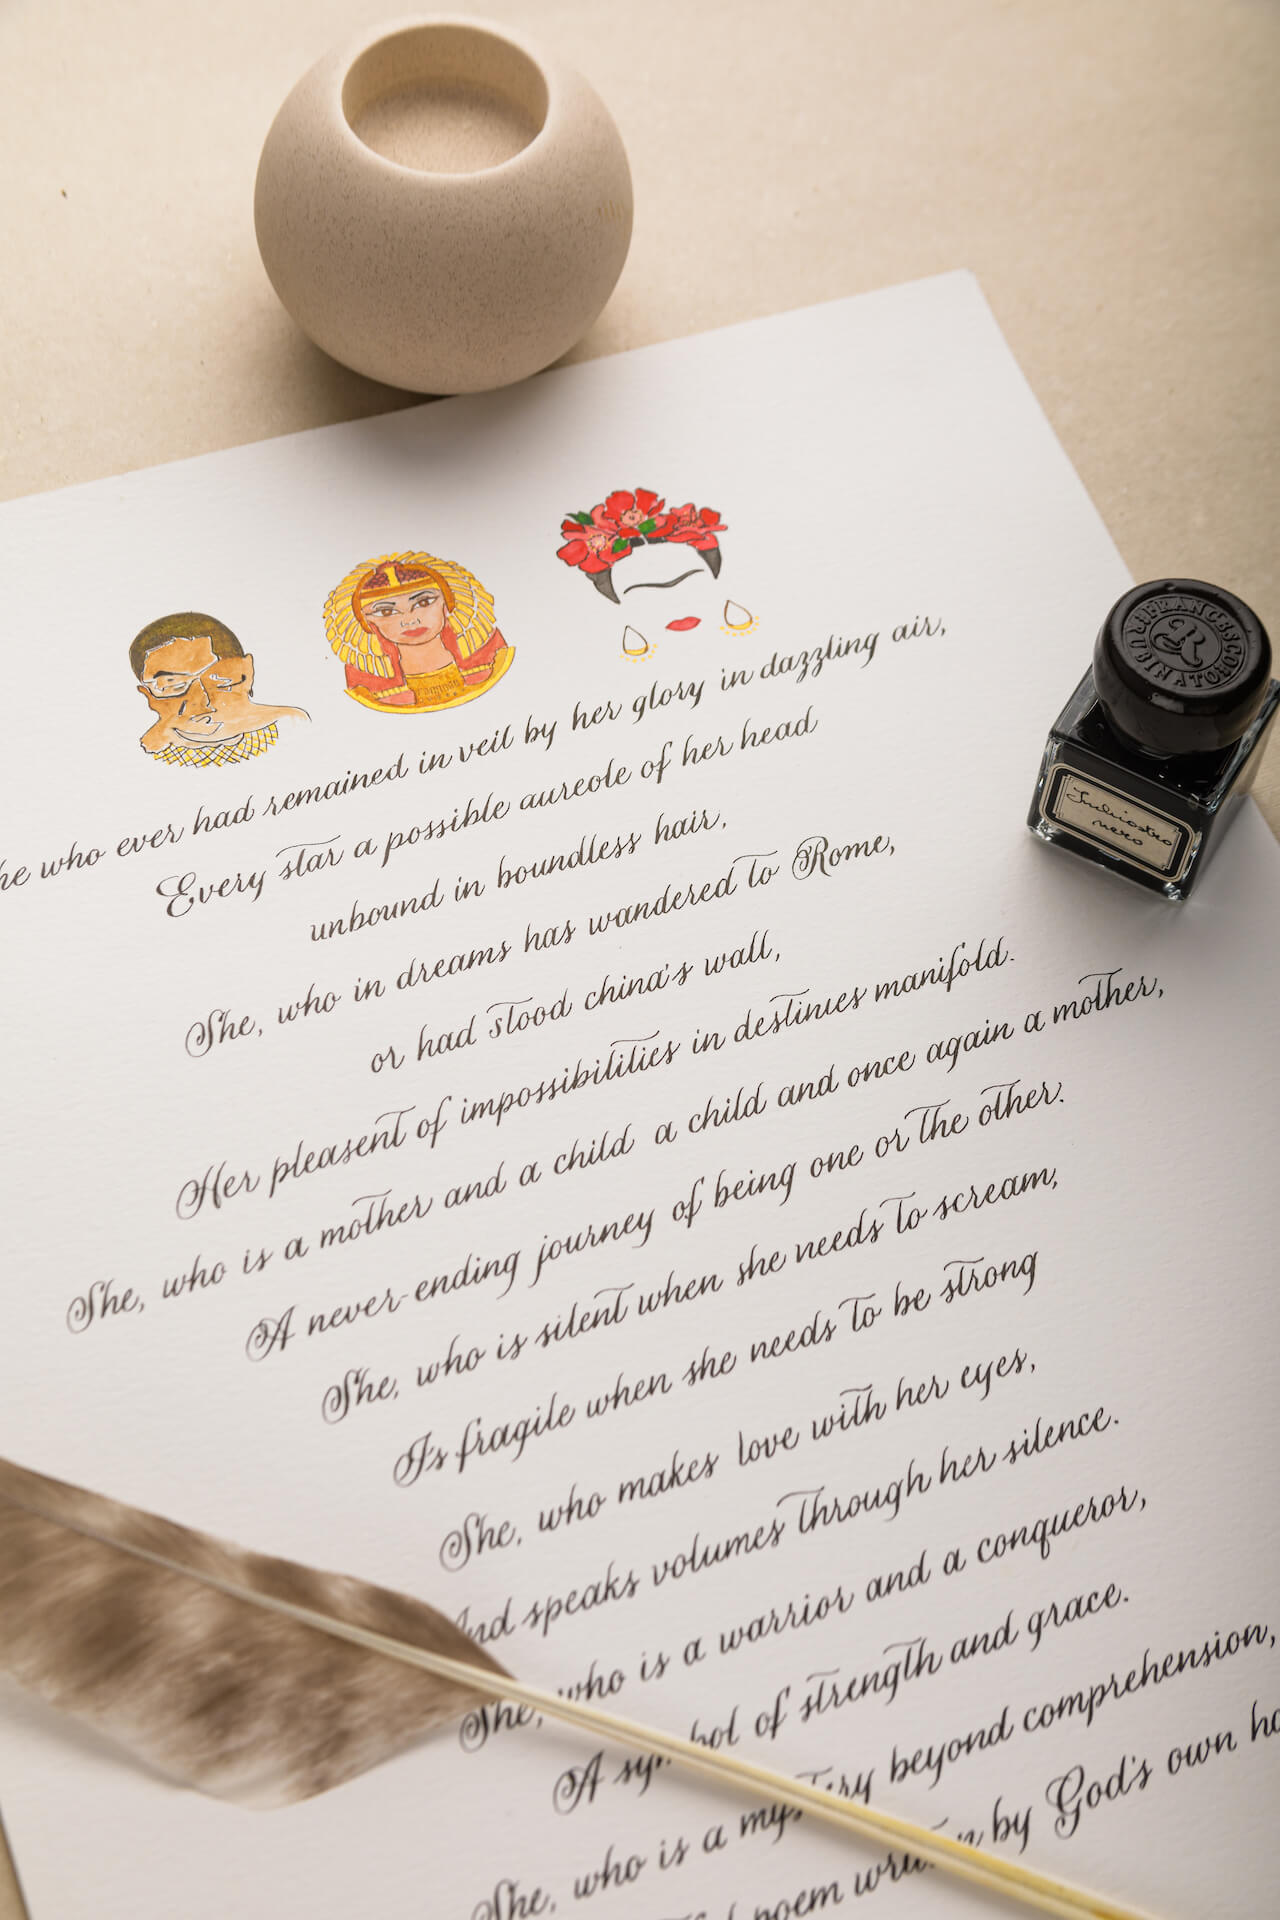 he who ever had remained in veil by her glory in dazzling air,
Every star a possible aureole of her head
unbound in boundless hair,
She, who in dreams has wandered to Rome,
or had stood china's wall,
Her pleasent of impossibilities in destinies manifold.
She, who is a mother and a child a child and once again a mother,
A never-ending journey of being one or the other.
She, who is silent when she needs to scream,
Is fragile when she needs to be strong
She, who makes love with her eyes,
And speaks volumes through her silence.
She, who is a warrior and a conqueror,
A symbol of strength and grace.
She, who is a mystery beyond comprehension,
poem written by God's own ha
FRANCESCO RUBINATO
R
Inchiostro
nero